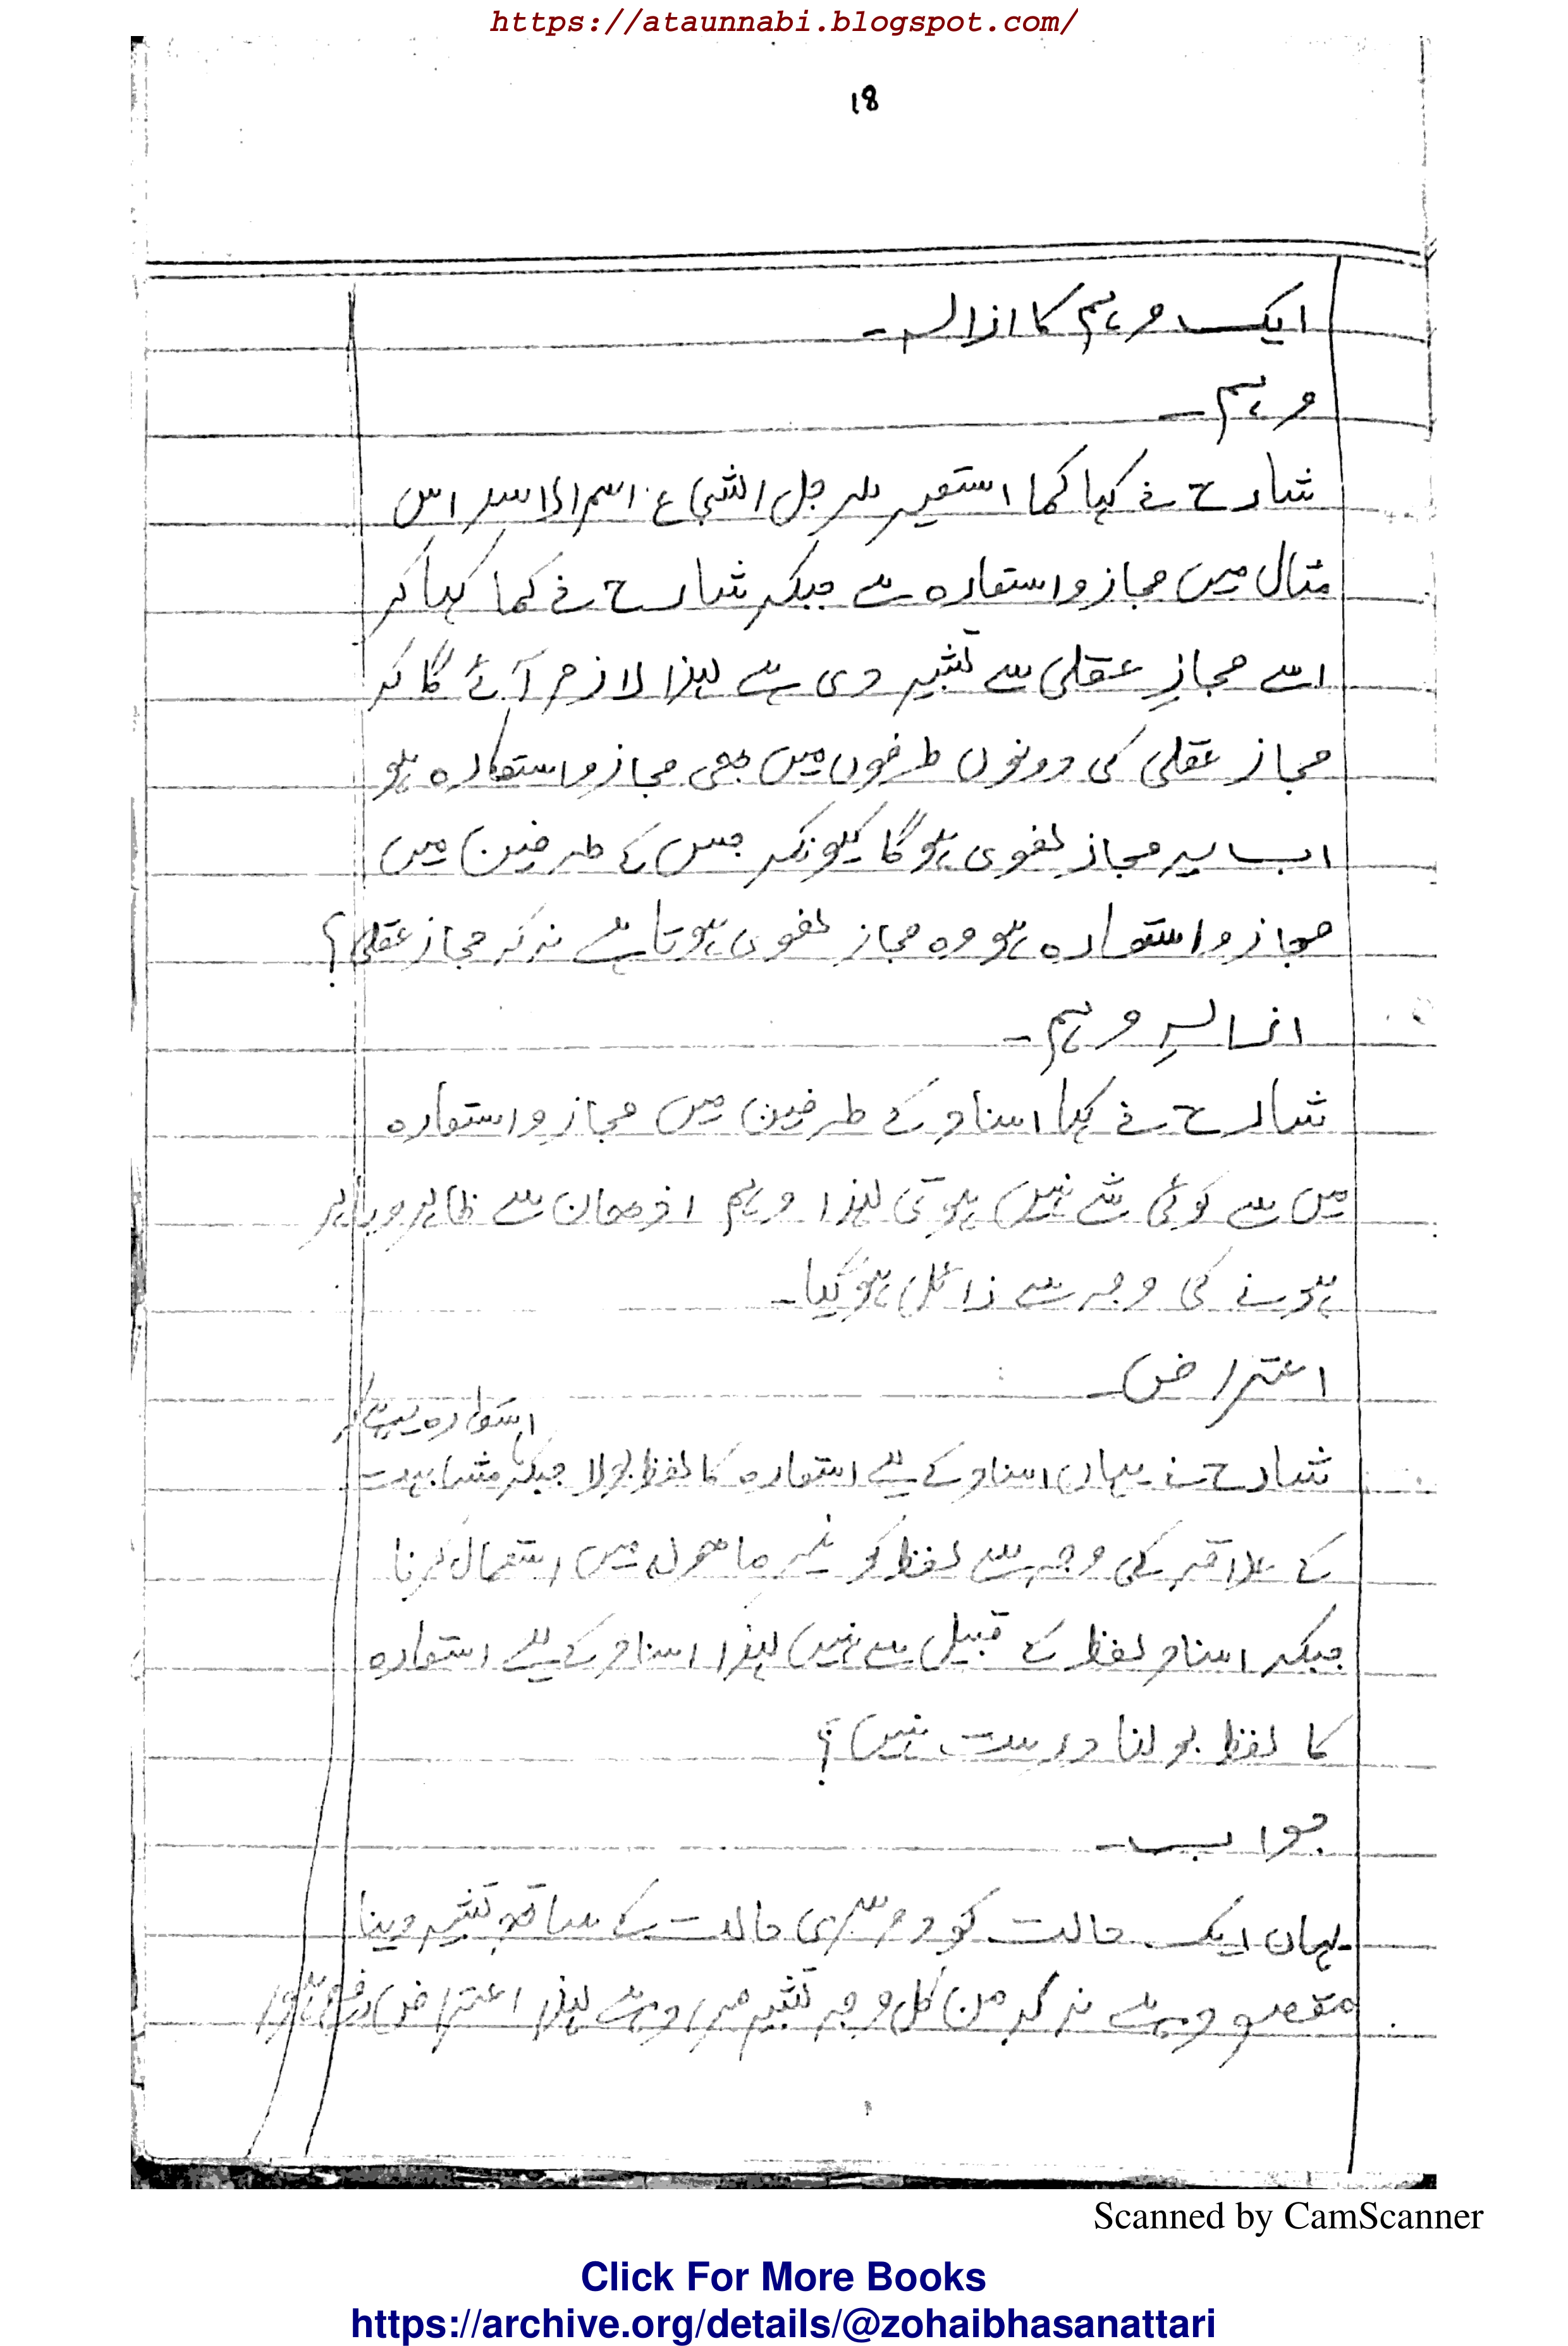 https://ataunnabi.blogspot.com/
18
ایک وہم کا ازالہ۔
وہم۔
شارح نے کہا کما استعیر للرجل الشجاع اسم الاسد اس
مثال میں مجاز و استعارہ ہے جبکہ شارح نے کما کہا کر
اسے مجازِ عقلی سے تشبیہ دی ہے لہذا لازم آئے گا کہ
مجاز عقلی کی دونوں طرفوں میں بھی مجاز و استعارہ ہو
اب یہ مجازِ لغوی ہو گا کیونکہ جس کے طرفین میں
مجاز و استعارہ ہو وہ مجاز لغوی ہوتا ہے نہ کہ مجاز عقلی؟
ازالہِ وہم۔
شارح نے کہا اسناد کے طرفین میں مجاز و استعارہ
میں سے کوئی شے نہیں ہوتی لہذا وہم اذھان سے ظاہر و باہر
ہونے کی وجہ سے زائل ہو گیا۔
اعتراض۔
شارح نے یہاں اسناد کے لیے استعارہ کا لفظ بولا جبکہ استعارہ یہ ہے کہ مشابہت
کے علاقہ کی وجہ سے لفظ کو غیر ما ھولہ میں استعمال کرنا
جبکہ اسناد لفظ کے قبیل سے نہیں لہذا اسناد کے لیے استعارہ
کا لفظ بولنا درست نہیں؟
جواب۔
یہاں ایک حالت کو دوسری حالت کے ساتھ تشبیہ دینا
مقصود ہے نہ کہ من کل وجہ تشبیہ مراد ہے لہذا اعتراض رفع ہوا
Scanned by CamScanner
Click For More Books
https://archive.org/details/@zohaibhasanattari